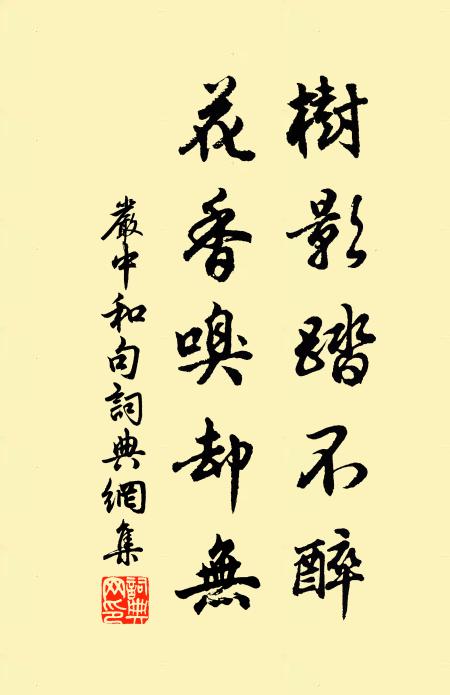 樹影踏不醉
花香嗅卻無
嚴中和句詞典網集
詞典網印